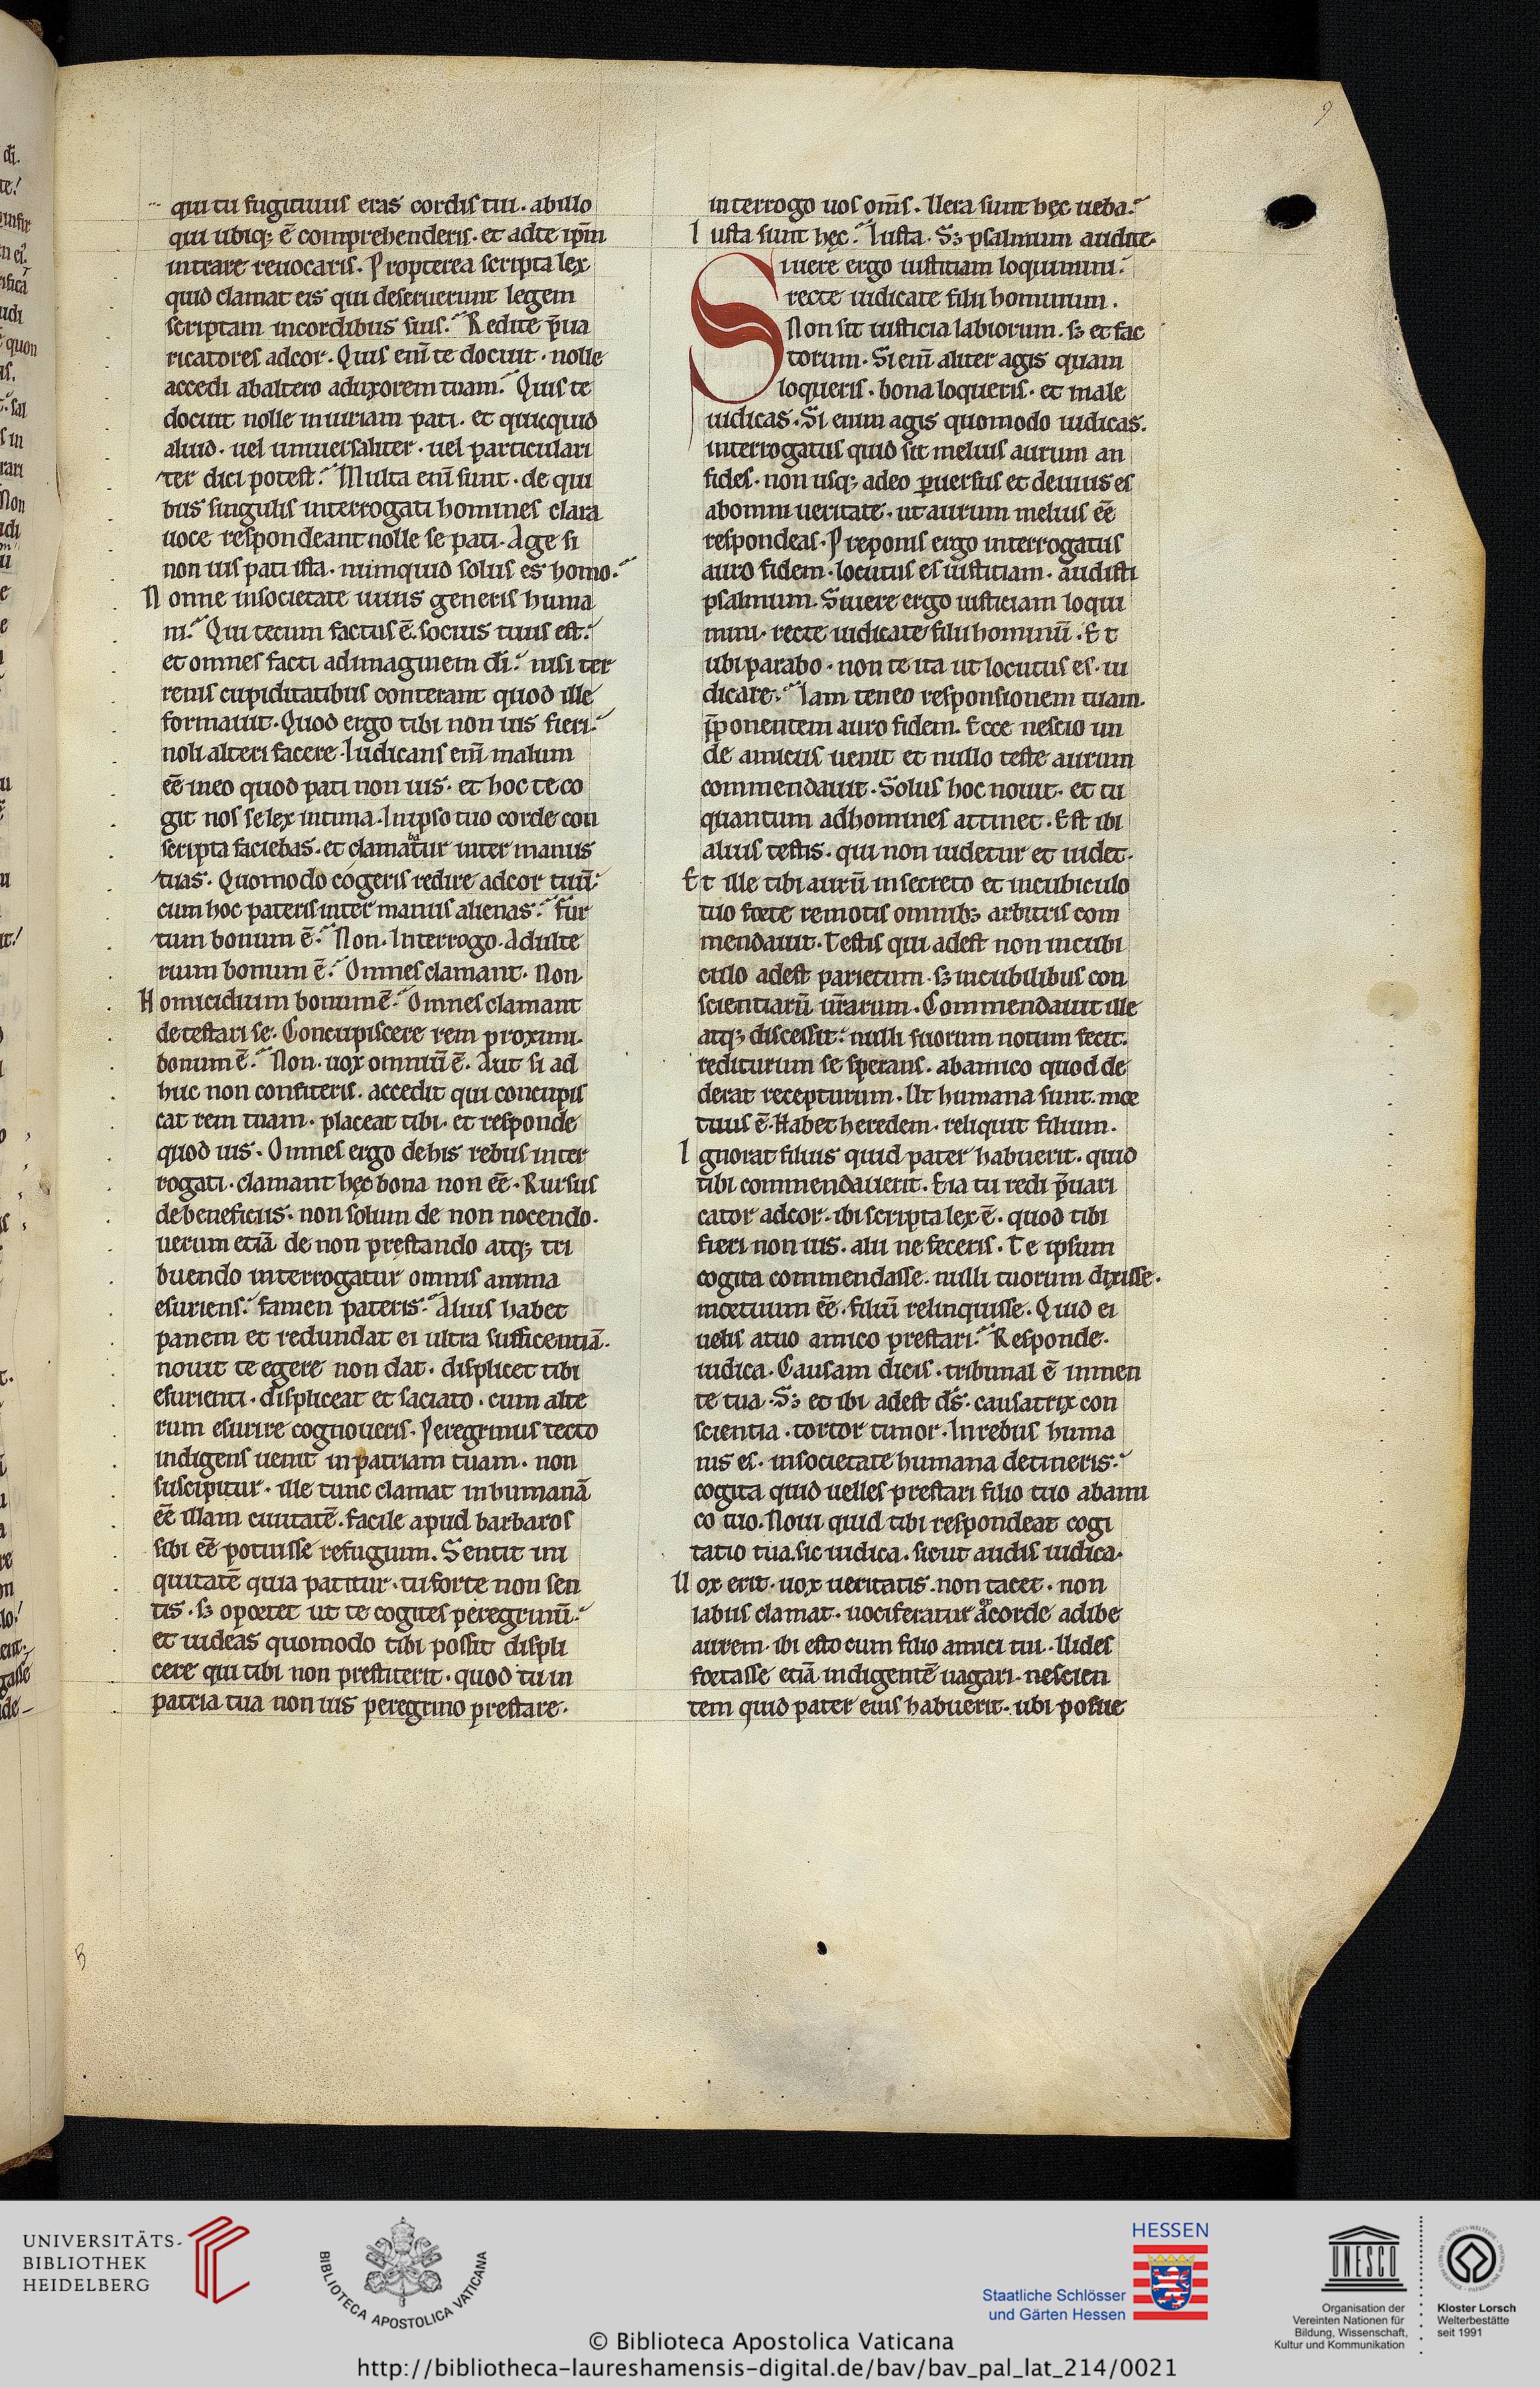 9
qui tu fugitiuus eras cordis tui. ab illo
qui ubiq; ē comprehenderis. et ad te ip̄m
intrare reuocaris. Propterea scripta lex
quid clamat eis qui deseruerunt legem
scriptam in cordibus suis. Redite p̄ua
ricatores ad cor. Quis eni̅ te docuit. nolle
accedi ab altero ad uxorem tuam. Quis te
docuit nolle iniuriam pati. et quicquid
aliud. uel uniuersaliter. uel particulari
ter dici potest. Multa eni̅ sunt. de qui
bus singulis interrogati homines clara
uoce respondeant nolle se pati. Age si
non uis pati ista. numquid solus es homo.
Nonne in societate uiuis generis huma
ni. Qui tecum factus ē. socius tuus est.
et omnes facti ad imaginem dī. nisi ter
renis cupiditatibus conterant quod ille
formauit. Quod ergo tibi non uis fieri.
noli alteri facere. Iudicans eni̅ malum
eē in eo quod pati non uis. et hoc te co
git nosse lex intima. In ipso tuo corde con
scripta faciebas. et clamabatur inter manus
tuas. Quomodo cogeris redire ad cor tuū.
cum hoc pateris inter manus alienas. fur
tum bonum ē. Non. Interrogo. Adulte
rium bonum ē. Omnes clamant. Non.
Homicidium bonum ē. Omnes clamant
detestari se. Concupiscere rem proximi.
bonum ē. Non. uox omniū ē. Aut si ad
huc non confiteris. accedit qui concupis
cat rem tuam. placeat tibi. et responde
quod uis. Omnes ergo de his rebus inter
rogati. clamant hęc bona non eē. Rursus
de beneficiis. non solum de non nocendo.
uerum etiā de non pręstando atq; tri
buendo interrogatur omnis anima
esuriens. famen pateris. Alius habet
panem et redundat ei ultra sufficentiā.
nouit te egere non dat. displicet tibi
esurienti. displiceat et saciato. cum alte
rum esurire cognoueris. Peregrinus tecto
indigens uenit in patriam tuam. non
suscipitur. ille tunc clamat inhumanā
eē illam ciuitatē. facile apud barbaros
sibi eē potuisse refugium. Sentit ini
quitatē quia patitur. tu forte non sen
tis. s; oportet ut te cogites peregrinū.
et uideas quomodo tibi possit displi
cere qui tibi non prestiterit. quod tu in
patria tua non uis peregrino prestare.
interrogo uos om̄s. Uera sunt hęc ueba.
Iusta sunt hęc. Iusta. S; psalmum audite.
Siuere ergo iustitiam loquimini.
recte iudicate filii hominum.
Non sit iusticia labiorum. s; et fac
torum. Si eni̅ aliter agis quam
loqueris. bona loqueris. et male
iudicas. Si enim agis quomodo iudicas.
interrogatus quid sit melius aurum an
fides. non usq; adeo ꝑuersus et deuius es
ab omni ueritate. ut aurum melius eē
respondeas. Preponis ergo interrogatus
auro fidem. locutus es iustitiam. audisti
psalmum. Siuere ergo iusticiam loqui
mini. recte iudicate filii hominū. Et
ubi parabo. non te ita ut locutus es. iu
dicare. Iam teneo responsionem tuam.
p̄ponentem auro fidem. Ecce nescio un
de amicus uenit et nullo teste aurum
commendauit. Solus hoc nouit. et tu
quantum ad homines attinet. Est ibi
alius testis. qui non uidetur et uidet.
Et ille tibi aurū in secreto et in cubiculo
tuo forte remotis omnib; arbitris com
mendauit. Testis qui adest non in cubi
culo adest parietum. s; in cubilibus con
scientiarū ur̄arum. Commendauit ille
atq; discessit. nulli suorum notum fecit.
rediturum se sperans. ab amico quod de
derat recepturum. Ut humana sunt. mor
tuus ē. Habet heredem. reliquit filium.
Ignorat filius quid pater habuerit. quid
tibi commendauerit. Eia tu redi p̄uari
cator ad cor. ibi scripta lex ē. quod tibi
fieri non uis. alii ne feceris. Te ipsum
cogita commendasse. nulli tuorum dixisse.
mortuum eē. filiū relinquisse. Quid ei
uelis a tuo amico prestari. Responde.
iudica. Causam dicis. tribunal ē in men
te tua. S; et ibi adest ds̄. causatrix con
scientia. tortor timor. In rebus huma
nis es. in societate humana detineris.
cogita quid uelles prestari filio tuo ab ami
co tuo. Noui quid tibi respondeat cogi
tatio tua. sic iudica. sicut audis iudica.
Uox erit. uox ueritatis. non tacet. non
labiis clamat. uociferatur a corde adibe
aurem. ibi esto cum filio amici tui. Uides
fortasse etiā indigentē uagari. nescien
tem quid pater eius habuerit. ubi posue
UNIVERSITÄTS-
BIBLIOTHEK
HEIDELBERG
BIBLIOTECA APOSTOLICA VATICANA
HESSEN
Staatliche Schlösser
und Gärten Hessen
UNESCO
Organisation der
Vereinten Nationen für
Bildung, Wissenschaft,
Kultur und Kommunikation
Kloster Lorsch
Welterbestätte
seit 1991
© Biblioteca Apostolica Vaticana
http://bibliotheca-laureshamensis-digital.de/bav/bav_pal_lat_214/0021